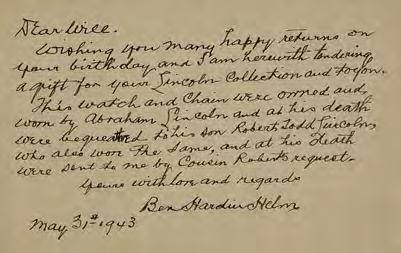 Dear Will.
Wishing you many happy returns on
your birthday and I am herewith tendering
a gift for your Lincoln Collection and to you.
This watch and Chain were owned and
worn by Abraham Lincoln and at his death
were bequeathed to his son Robert Todd Lincoln,
who also wore the same, and at his death
were sent to me by Cousin Robert's request.
Yours with love and regards
Ben Hardin Helm
May 31st 1943